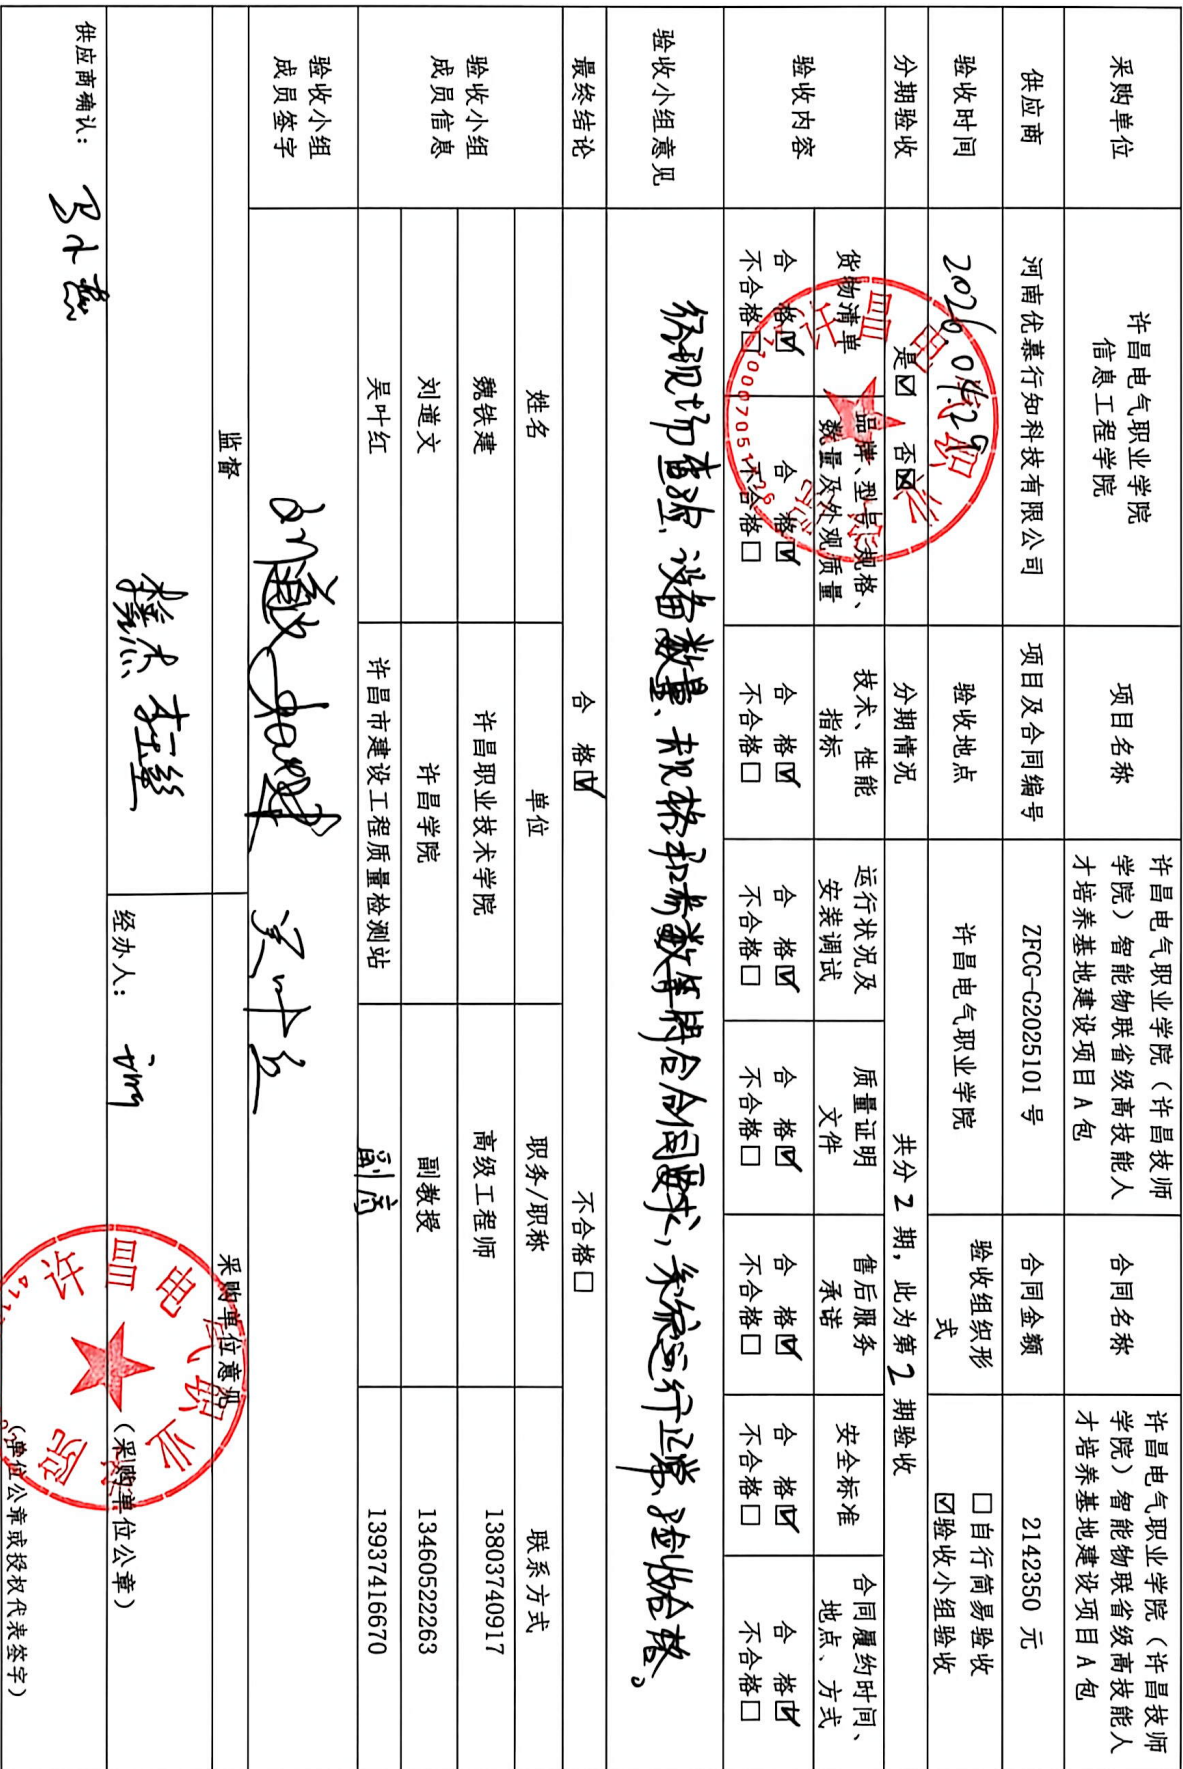 采购单位
许昌电气职业学院
信息工程学院
项目名称
许昌电气职业学院（许昌技师
学院）智能物联省级高技能人
才培养基地建设项目A包
合同名称
许昌电气职业学院（许昌技师
学院）智能物联省级高技能人
才培养基地建设项目A包
供应商
河南优慕行知科技有限公司
项目及合同编号
ZFCG-G2025101号
合同金额
2142350 元
验收时间
2026.04.29
验收地点
许昌电气职业学院
验收组织形
式
□自行简易验收
☑验收小组验收
分期验收
是☑ 否☒
分期情况
共分 2 期，此为第 2 期验收
验收内容
货物清单
品牌、型号、规格、
数量及外观质量
技术、性能
指标
运行状况及
安装调试
质量证明
文件
售后服务
承诺
安全标准
合同履约时间、
地点、方式
合 格☑
不合格□
合 格☑
不合格□
合 格☑
不合格□
合 格☑
不合格□
合 格☑
不合格□
合 格☑
不合格□
合 格☑
不合格□
合 格☑
不合格□
验收小组意见
经现场查验，设备数量、规格和参数等符合合同要求，系统运行正常，验收合格。
最终结论
合 格☑
不合格□
验收小组
成员信息
姓名
单位
职务/职称
联系方式
魏铁建
许昌职业技术学院
高级工程师
13803740917
刘道文
许昌学院
副教授
13460522263
吴叶红
许昌市建设工程质量检测站
副高
13937416670
验收小组
成员签字
刘道文
吴叶红
监督
采购单位意见
经办人：
（采购单位公章）
供应商确认：
（单位公章或授权代表签字）
许昌电气职业学院
许昌电气职业学院